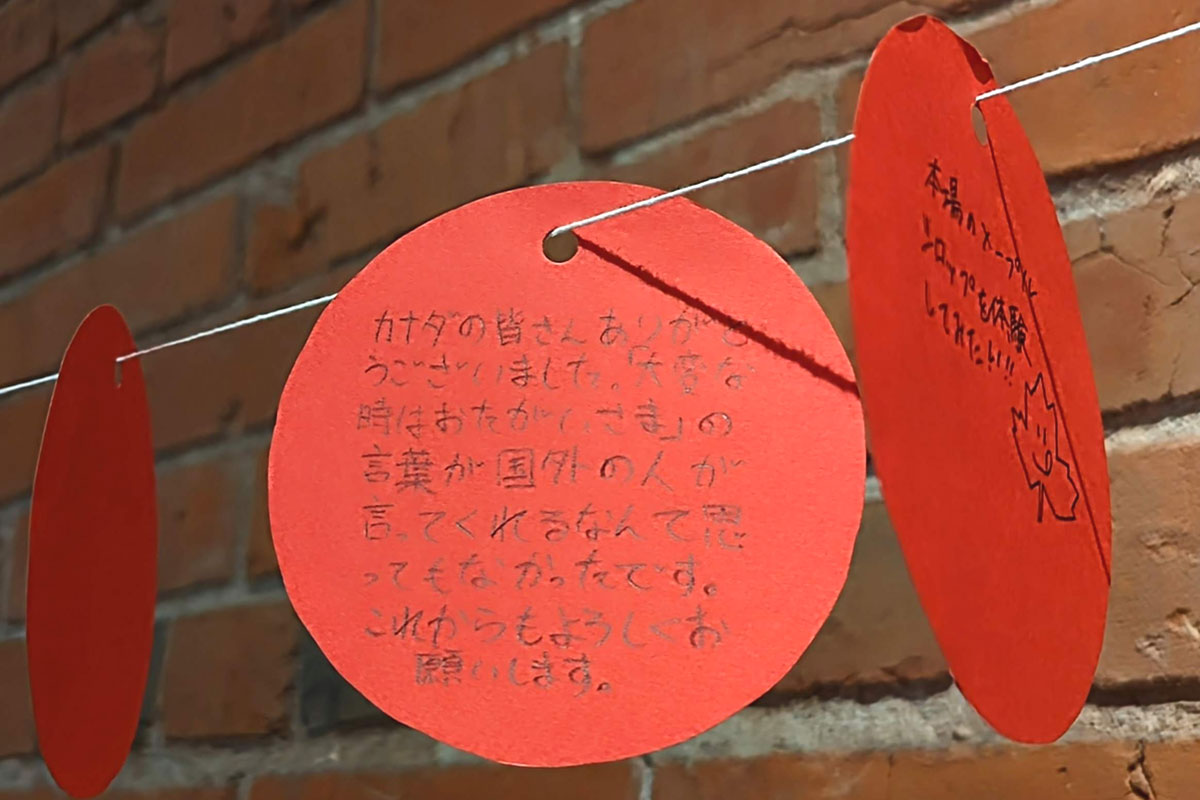 カナダの皆さんありがと
うございました。「大変な
時はおたがいさま」の
言葉が国外の人が
言ってくれるなんて思
ってもなかったです。
これからもよろしくお
願いします。
本場のメープル
シロップを体験
してみたい!!